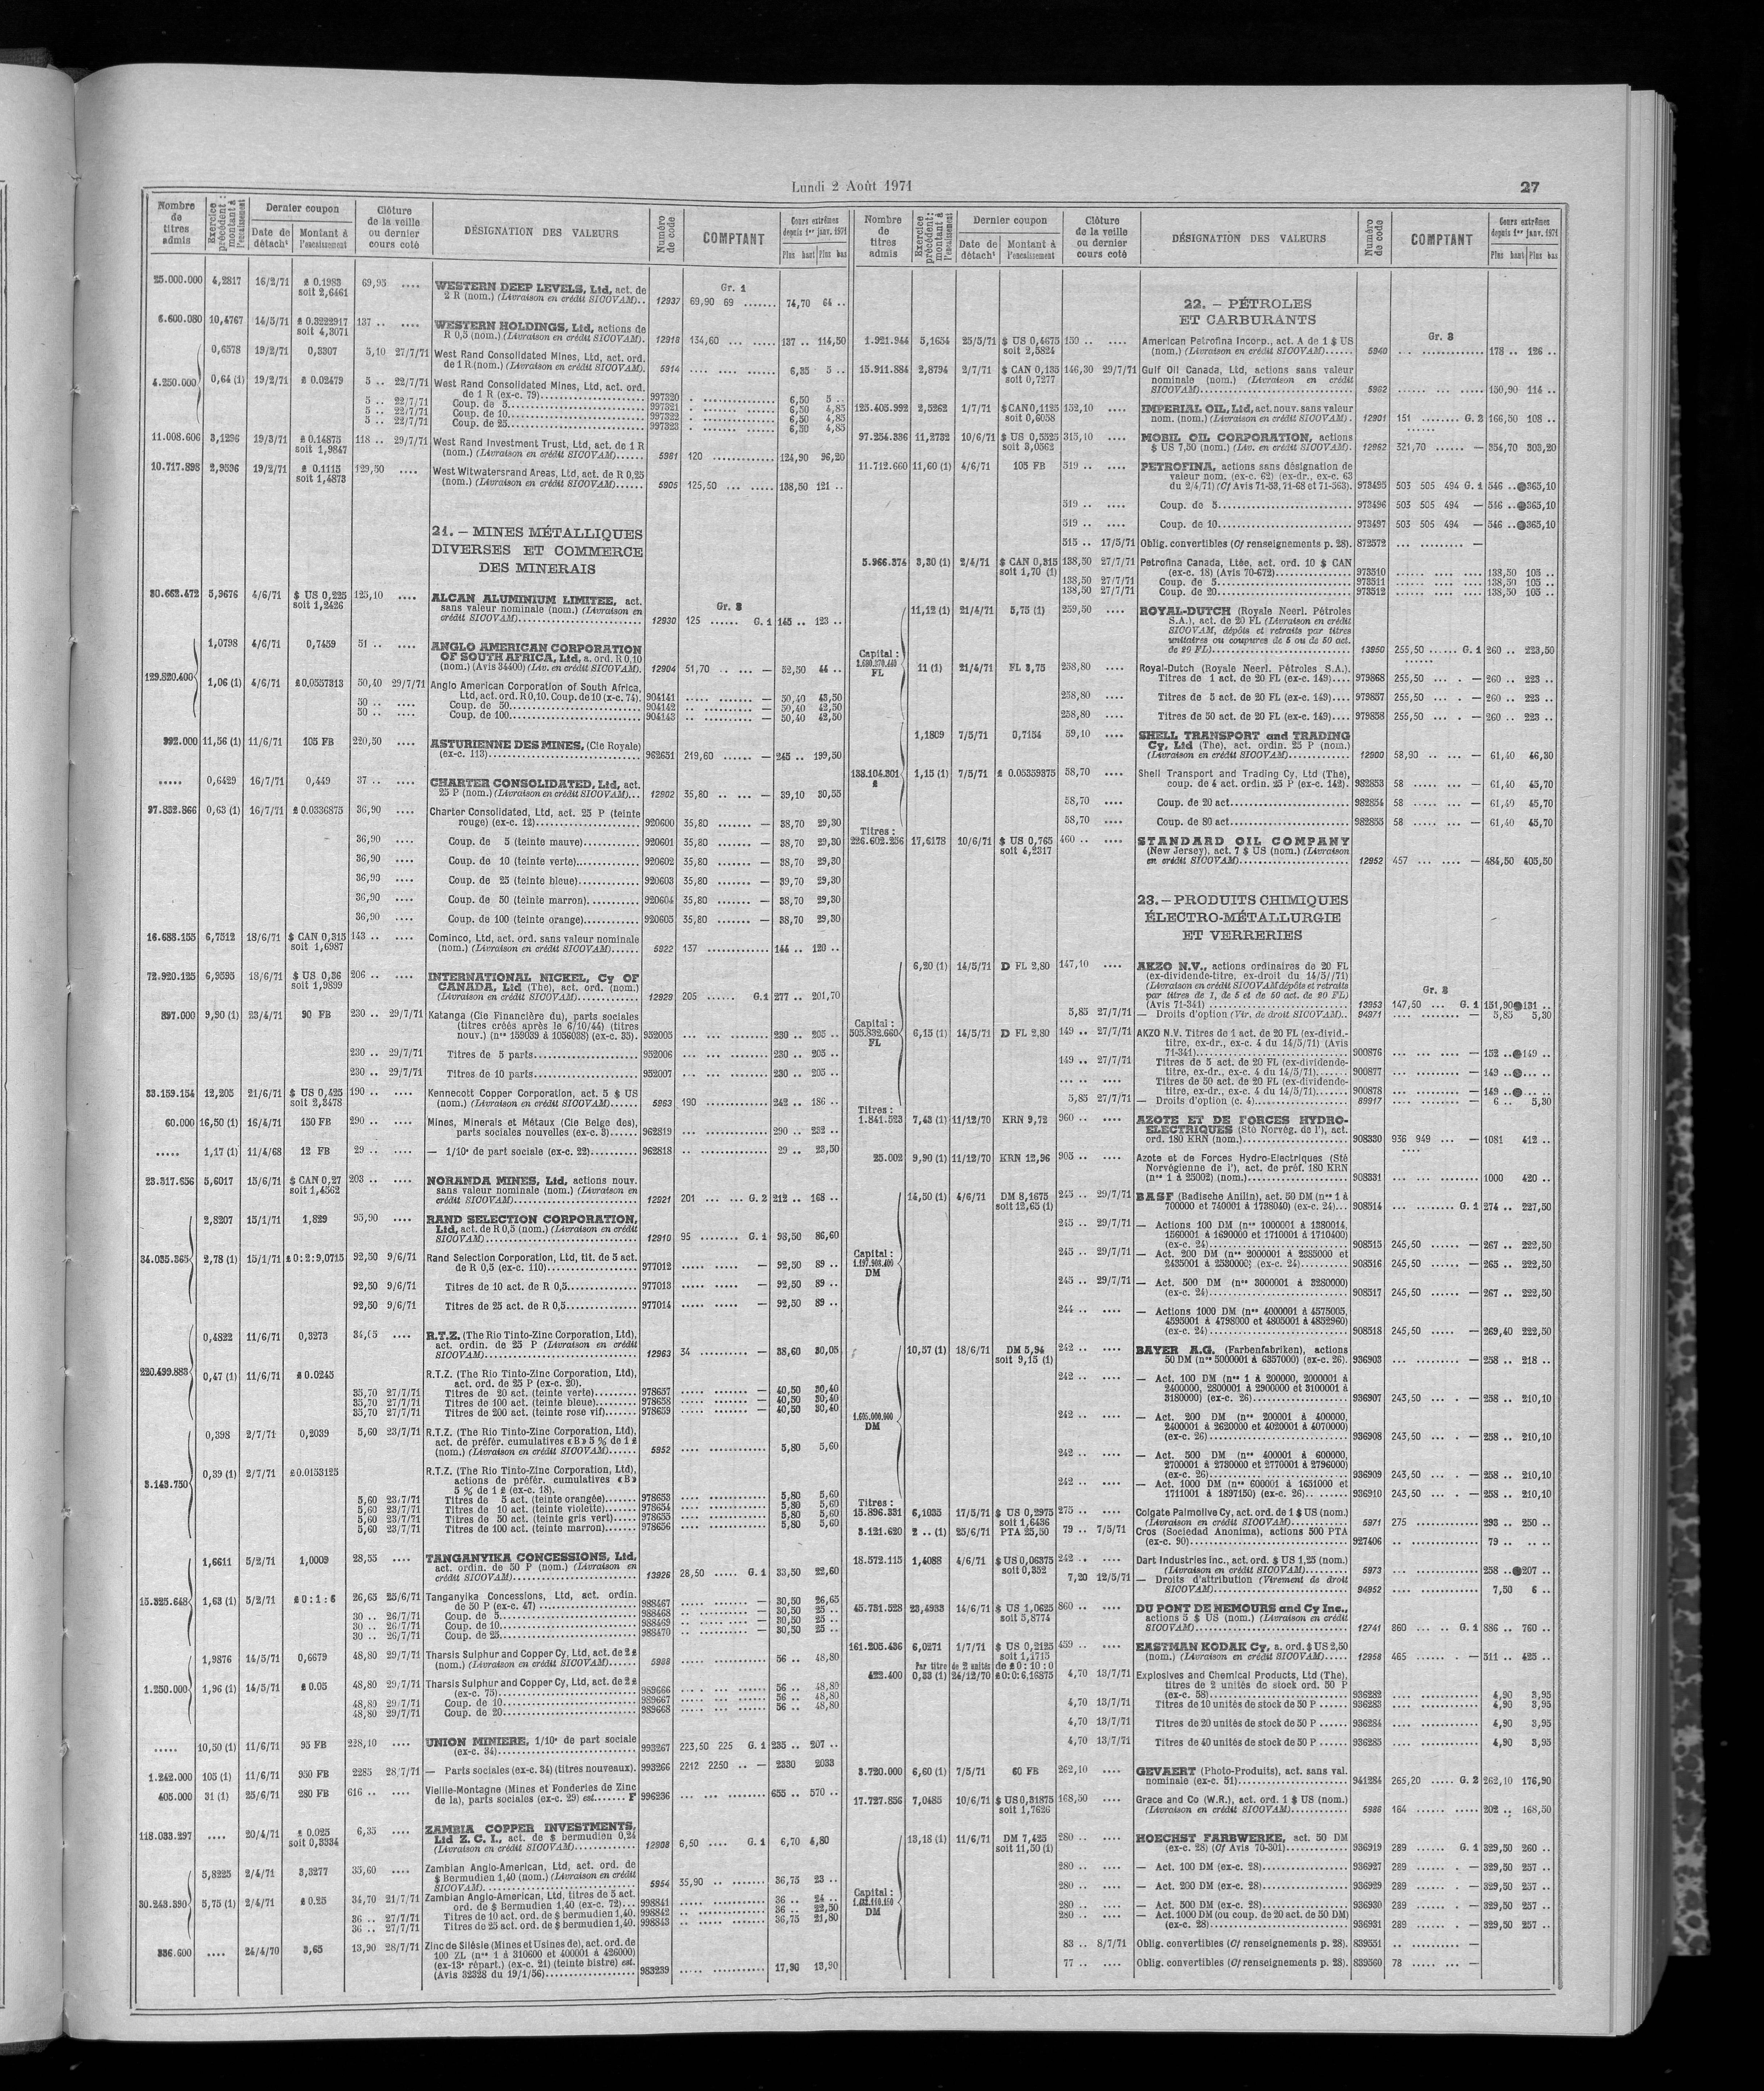 Lundi 2 Août 1971
27
Nombre de titres admis | Exercice précédent : montant à l'encaissement | Dernier coupon | Date de détach<sup>t</sup> | Montant à l'encaissement | Clôture de la veille ou dernier cours coté | DÉSIGNATION DES VALEURS | Numéro de code | COMPTANT | Cours extrêmes depuis 1er janv. 1971 | Plus haut | Plus bas
Gr. 1
25.000.000 4,2817 16/2/71 £ 0.1983 69,95 .... WESTERN DEEP LEVELS, Ltd, act. de
soit 2,6461 2 R (nom.) (Livraison en crédit SICOVAM).. 12937 69,90 69 ....... 74,70 64 ..
6.600.080 10,4767 14/5/71 £ 0.3222917 137 .. .... WESTERN HOLDINGS, Ltd, actions de
soit 4,3071 R 0,5 (nom.) (Livraison en crédit SICOVAM). 12918 134,60 ... ..... 137 .. 114,50
0,6578 19/2/71 0,3307 5,10 27/7/71 West Rand Consolidated Mines, Ltd, act. ord.
de 1 R (nom.) (Livraison en crédit SICOVAM). 5914 .... .... ...... 6,35 5 ..
4.250.000 0,64 (1) 19/2/71 £ 0.02479 5 .. 22/7/71 West Rand Consolidated Mines, Ltd, act. ord.
de 1 R (ex-c. 79) 997320 6,50 5 ..
5 .. 22/7/71 Coup. de 5 997321 6,50 4,85
5 .. 22/7/71 Coup. de 10 997322 6,50 4,85
5 .. 22/7/71 Coup. de 25 997323 6,50 4,85
11.008.606 3,1296 19/3/71 £ 0.14875 118 .. 29/7/71 West Rand Investment Trust, Ltd, act. de 1 R
soit 1,9847 (nom.) (Livraison en crédit SICOVAM) 5981 120 124,90 96,20
10.717.898 2,9596 19/2/71 £ 0.1115 129,50 .... West Witwatersrand Areas, Ltd, act. de R 0,25
soit 1,4873 (nom.) (Livraison en crédit SICOVAM)...... 5905 125,50 ... ..... 138,50 121 ..
21. – MINES MÉTALLIQUES
DIVERSES ET COMMERCE
DES MINERAIS
Gr. 3
30.662.472 5,9676 4/6/71 $ US 0,225 125,10 .... ALCAN ALUMINIUM LIMITEE, act.
soit 1,2426 sans valeur nominale (nom.) (Livraison en
crédit SICOVAM) 12930 125 ...... G. 1 145 .. 123 ..
1,0798 4/6/71 0,7459 51 .. .... ANGLO AMERICAN CORPORATION
OF SOUTH AFRICA, Ltd, a. ord. R 0,10
(nom.) (Avis 34400) (Liv. en crédit SICOVAM). 12904 51,70 .. ... — 52,50 44 ..
129.520.400 1,06 (1) 4/6/71 £0,0557313 50,40 29/7/71 Anglo American Corporation of South Africa,
Ltd, act. ord. R 0,10. Coup. de 10 (x-c. 74). 904141 — 50,40 43,50
50 .. .... Coup. de 50 904142 — 50,40 42,50
50 .. .... Coup. de 100 904143 — 50,40 42,50
392.000 11,56 (1) 11/6/71 105 FB 220,50 .... ASTURIENNE DES MINES, (Cie Royale)
(ex-c. 113) 962651 219,60 ...... — 245 .. 199,50
..... 0,6429 16/7/71 0,449 37 .. .... CHARTER CONSOLIDATED, Ltd, act.
25 P (nom.) (Livraison en crédit SICOVAM)... 12902 35,80 .. ... — 39,10 30,55
97.832.866 0,63 (1) 16/7/71 £ 0.0336875 36,90 .... Charter Consolidated, Ltd, act. 25 P (teinte
rouge) (ex-c. 12) 920600 35,80 ....... — 38,70 29,30
36,90 .... Coup. de 5 (teinte mauve) 920601 35,80 ....... — 38,70 29,30
36,90 .... Coup. de 10 (teinte verte) 920602 35,80 ....... — 38,70 29,30
36,90 .... Coup. de 25 (teinte bleue) 920603 35,80 ....... — 39,70 29,30
36,90 .... Coup. de 50 (teinte marron) 920604 35,80 ....... — 38,70 29,30
36,90 .... Coup. de 100 (teinte orange) 920605 35,80 ....... — 38,70 29,30
16.688.155 6,7512 18/6/71 $ CAN 0,315 143 .. .... Cominco, Ltd, act. ord. sans valeur nominale
soit 1,6987 (nom.) (Livraison en crédit SICOVAM)...... 5922 137 144 .. 120 ..
72.920.125 6,9595 18/6/71 $ US 0,36 206 .. .... INTERNATIONAL NICKEL, Cy OF
soit 1,9899 CANADA, Ltd (The), act. ord. (nom.)
(Livraison en crédit SICOVAM) 12929 205 ...... G.1 277 .. 201,70
897.000 9,90 (1) 23/4/71 90 FB 230 .. 29/7/71 Katanga (Cie Financière du), parts sociales
(titres créés après le 6/10/44) (titres
nouv.) (nos 159039 à 1056038) (ex-c. 33). 952005 230 .. 205 ..
230 .. 29/7/71 Titres de 5 parts 952006 230 .. 205 ..
230 .. 29/7/71 Titres de 10 parts 952007 230 .. 205 ..
33.159.154 12,205 21/6/71 $ US 0,425 190 .. .... Kennecott Copper Corporation, act. 5 $ US
soit 2,3478 (nom.) (Livraison en crédit SICOVAM)...... 5963 190 242 .. 186 ..
60.000 16,50 (1) 16/4/71 150 FB 290 .. .... Mines, Minerais et Métaux (Cie Belge des),
parts sociales nouvelles (ex-c. 3) 962819 290 .. 252 ..
..... 1,17 (1) 11/4/68 12 FB 29 .. .... — 1/10e de part sociale (ex-c. 22) 962818 29 .. 23,50
23.517.656 5,6017 15/6/71 $ CAN 0,27 203 .. .... NORANDA MINES, Ltd, actions nouv.
soit 1,4562 sans valeur nominale (nom.) (Livraison en
crédit SICOVAM) 12921 201 ... ... G. 2 212 .. 168 ..
2,8207 15/1/71 1,829 95,90 .... RAND SELECTION CORPORATION,
Ltd, act. de R 0,5 (nom.) (Livraison en crédit
SICOVAM) 12910 95 ........ G. 1 98,50 86,60
34.035.365 2,78 (1) 15/1/71 £0:2:9,0715 92,50 9/6/71 Rand Selection Corporation, Ltd, tit. de 5 act.
de R 0,5 (ex-c. 110) 977012 — 92,50 89 ..
92,50 9/6/71 Titres de 10 act. de R 0,5 977013 — 92,50 89 ..
92,50 9/6/71 Titres de 25 act. de R 0,5 977014 — 92,50 89 ..
0,4822 11/6/71 0,3273 .... R.T.Z. (The Rio Tinto-Zinc Corporation, Ltd),
act. ordin. de 25 P (Livraison en crédit
SICOVAM) 12963 34 — 38,60 30,05
220.499.883 0,47 (1) 11/6/71 £ 0.0245 R.T.Z. (The Rio Tinto-Zinc Corporation, Ltd),
act. ord. de 25 P (ex-c. 20).
35,70 27/7/71 Titres de 20 act. (teinte verte) 978657 — 40,50 30,40
35,70 27/7/71 Titres de 100 act. (teinte bleue) 978658 — 40,50 30,40
35,70 27/7/71 Titres de 200 act. (teinte rose vif) 978659 — 40,50 30,40
0,398 2/7/71 0,2039 5,60 23/7/71 R.T.Z. (The Rio Tinto-Zinc Corporation, Ltd),
act. de préfér. cumulatives «B» 5 % de 1 £
(nom.) (Livraison en crédit SICOVAM)...... 5952 5,80 5,60
3.143.750 0,39 (1) 2/7/71 £0.0153125 R.T.Z. (The Rio Tinto-Zinc Corporation, Ltd),
actions de préfér. cumulatives «B»
5 % de 1 £ (ex-c. 18).
5,60 23/7/71 Titres de 5 act. (teinte orangée) 978653 5,80 5,60
5,60 23/7/71 Titres de 10 act. (teinte violette) 978654 5,80 5,60
5,60 23/7/71 Titres de 50 act. (teinte gris vert) 978655 5,80 5,60
5,60 23/7/71 Titres de 100 act. (teinte marron) 978656 5,80 5,60
1,6611 5/2/71 1,0009 28,55 .... TANGANYIKA CONCESSIONS, Ltd,
act. ordin. de 50 P (nom.) (Livraison en
crédit SICOVAM) 13926 28,50 .... G. 1 33,50 22,60
15.325.648 1,63 (1) 5/2/71 £ 0:1:6 26,65 25/6/71 Tanganyika Concessions, Ltd, act. ordin.
de 50 P (ex-c. 47) 988467 — 30,50 26,65
30 .. 26/7/71 Coup. de 5 988468 — 30,50 25 ..
30 .. 26/7/71 Coup. de 10 988469 — 30,50 25 ..
30 .. 26/7/71 Coup. de 25 988470 — 30,50 25 ..
1,9876 14/5/71 0,6679 48,80 29/7/71 Tharsis Sulphur and Copper Cy, Ltd, act. de 2 £
(nom.) (Livraison en crédit SICOVAM)...... 5988 56 .. 48,80
1.250.000 1,96 (1) 14/5/71 £ 0.05 48,80 29/7/71 Tharsis Sulphur and Copper Cy, Ltd, act. de 2 £
(ex-c. 75) 989666 56 .. 48,80
48,80 29/7/71 Coup. de 10 989667 56 .. 48,80
48,80 29/7/71 Coup. de 20 989668 56 .. 48,80
..... 10,50 (1) 11/6/71 95 FB 228,10 .... UNION MINIERE, 1/10e de part sociale
(ex-c. 34) 993267 223,50 225 G. 1 235 .. 207 ..
1.242.000 105 (1) 11/6/71 950 FB 2285 28/7/71 — Parts sociales (ex-c. 34) (titres nouveaux). 993266 2212 2250 .. — 2330 2033
405.000 31 (1) 25/6/71 280 FB 616 .. .... Vieille-Montagne (Mines et Fonderies de Zinc
de la), parts sociales (ex-c. 29) est....... F 996236 655 .. 570 ..
118.033.297 .... 20/4/71 £ 0.025 6,35 .... ZAMBIA COPPER INVESTMENTS,
soit 0,3334 Ltd Z. C. I., act. de $ bermudien 0,24
(Livraison en crédit SICOVAM) 12908 6,50 .... G. 1 6,70 4,80
5,8225 2/4/71 3,3277 35,60 .... Zambian Anglo-American, Ltd, act. ord. de
$ Bermudien 1,40 (nom.) (Livraison en crédit
SICOVAM) 5954 35,90 36,75 23 ..
30.243.390 5,75 (1) 2/4/71 £ 0.25 34,70 21/7/71 Zambian Anglo-American, Ltd, titres de 5 act.
ord. de $ Bermudien 1,40 (ex-c. 72) 998841 36 .. 24 ..
36 .. 27/7/71 Titres de 10 act. ord. de $ bermudien 1,40. 998842 36 .. 22,50
36 .. 27/7/71 Titres de 25 act. ord. de $ bermudien 1,40. 998843 36,75 21,80
336.600 .... 24/4/70 3,65 13,90 28/7/71 Zinc de Silésie (Mines et Usines de), act. ord. de
100 ZL (nos 1 à 310600 et 400001 à 426000)
(ex-13e répart.) (ex-c. 21) (teinte bistre) est.
(Avis 32328 du 19/1/56) 983239 17,90 13,90
Nombre de titres admis | Exercice précédent : montant à l'encaissement | Dernier coupon | Date de détach<sup>t</sup> | Montant à l'encaissement | Clôture de la veille ou dernier cours coté | DÉSIGNATION DES VALEURS | Numéro de code | COMPTANT | Cours extrêmes depuis 1er janv. 1971 | Plus haut | Plus bas
22. – PÉTROLES
ET CARBURANTS
Gr. 3
1.921.944 5,1654 25/5/71 $ US 0,4675 159 .. .... American Petrofina Incorp., act. A de 1 $ US
soit 2,5824 (nom.) (Livraison en crédit SICOVAM)...... 5940 178 .. 126 ..
15.911.884 2,8794 2/7/71 $ CAN 0,135 146,30 29/7/71 Gulf Oil Canada, Ltd, actions sans valeur
soit 0,7277 nominale (nom.) (Livraison en crédit
SICOVAM) 5962 150,90 114 ..
125.405.992 2,5262 1/7/71 $ CAN 0,1125 152,10 .... IMPERIAL OIL, Ltd, act. nouv. sans valeur
soit 0,6058 nom. (nom.) (Livraison en crédit SICOVAM). 12901 151 ...... G. 2 166,50 108 ..
97.254.336 11,2732 10/6/71 $ US 0,5525 315,10 .... MOBIL OIL CORPORATION, actions
soit 3,0562 $ US 7,50 (nom.) (Liv. en crédit SICOVAM). 12962 321,70 ...... — 354,70 303,20
11.712.660 11,60 (1) 4/6/71 105 FB 519 .. .... PETROFINA, actions sans désignation de
valeur nom. (ex-c. 62) (ex-dr., ex-c. 63
du 2/4/71) (Cf Avis 71-53, 71-68 et 71-563). 973495 503 505 494 G. 1 546 ..●365,10
519 .. .... Coup. de 5 973496 503 505 494 — 546 ..●365,10
519 .. .... Coup. de 10 973497 503 505 494 — 546 ..●365,10
515 .. 17/5/71 Oblig. convertibles (Cf renseignements p. 28). 872572 —
5.966.374 3,30 (1) 2/4/71 $ CAN 0,315 138,50 27/7/71 Petrofina Canada, Ltée, act. ord. 10 $ CAN
soit 1,70 (1) (ex-c. 18) (Avis 70-672) 973510 138,50 105 ..
138,50 27/7/71 Coup. de 5 973511 138,50 105 ..
138,50 27/7/71 Coup. de 20 973512 138,50 105 ..
11,12 (1) 21/4/71 5,75 (1) 259,50 .... ROYAL-DUTCH (Royale Neerl. Pétroles
S.A.), act. de 20 FL (Livraison en crédit
SICOVAM, dépôts et retraits par titres
unitaires ou coupures de 5 ou de 50 act.
de 20 FL) 13950 255,50 ...... G. 1 260 .. 223,50
Capital :
FL 11 (1) 21/4/71 FL 3,75 258,80 .... Royal-Dutch (Royale Neerl. Pétroles S.A.).
Titres de 1 act. de 20 FL (ex-c. 149).... 979868 255,50 ... . — 260 .. 223 ..
258,80 .... Titres de 5 act. de 20 FL (ex-c. 149).... 979857 255,50 ... . — 260 .. 223 ..
258,80 .... Titres de 50 act. de 20 FL (ex-c. 149).... 979858 255,50 ... . — 260 .. 223 ..
1,1809 7/5/71 0,7154 59,10 .... SHELL TRANSPORT and TRADING
Cy, Ltd (The), act. ordin. 25 P (nom.)
(Livraison en crédit SICOVAM) 12900 58,90 — 61,40 46,30
138.104.301 £ 1,15 (1) 7/5/71 £ 0.05359375 58,70 .... Shell Transport and Trading Cy, Ltd (The),
coup. de 4 act. ordin. 25 P (ex-c. 142). 982853 58 — 61,40 45,70
58,70 .... Coup. de 20 act. 982854 58 — 61,40 45,70
58,70 .... Coup. de 80 act. 982855 58 — 61,40 45,70
Titres :
226.602.256 17,6178 10/6/71 $ US 0,765 460 .. .... STANDARD OIL COMPANY
soit 4,2317 (New Jersey), act. 7 $ US (nom.) (Livraison
en crédit SICOVAM) 12952 457 — 484,50 405,50
23. – PRODUITS CHIMIQUES
ÉLECTRO-MÉTALLURGIE
ET VERRERIES
Gr. 3
6,20 (1) 14/5/71 D FL 2,80 147,10 .... AKZO N.V., actions ordinaires de 20 FL
(ex-dividende-titre, ex-droit du 14/5/71)
(Livraison en crédit SICOVAM dépôts et retraits
par titres de 1, de 5 et de 50 act. de 20 FL)
(Avis 71-341) 13953 147,50 ... G. 1 151,90●131 ..
5,85 27/7/71 — Droits d'option (Vir. de droit SICOVAM).. 94971 5,85 5,30
Capital :
505.832.660 FL 6,15 (1) 14/5/71 D FL 2,80 149 .. 27/7/71 AKZO N.V. Titres de 1 act. de 20 FL (ex-divid.-
titre, ex-dr., ex-c. 4 du 14/5/71) (Avis
71-341) 900876 — 152 ..●149 ..
149 .. 27/7/71 Titres de 5 act. de 20 FL (ex-dividende-
titre, ex-dr., ex-c. 4 du 14/5/71) 900877 — 149 ..●... ..
... .. .... Titres de 50 act. de 20 FL (ex-dividende-
titre, ex-dr., ex-c. 4 du 14/5/71) 900878 — 149 ..●... ..
5,85 27/7/71 — Droits d'option (c. 4) 89917 — 6 .. 5,30
Titres :
1.841.523 7,43 (1) 11/12/70 KRN 9,72 960 .. .... AZOTE ET DE FORCES HYDRO-
ELECTRIQUES (Sté Norvég. de l'), act.
ord. 180 KRN (nom.) 908330 936 949 ... — 1081 412 ..
25.002 9,90 (1) 11/12/70 KRN 12,96 905 .. .... Azote et de Forces Hydro-Electriques (Sté
Norvégienne de l'), act. de préf. 180 KRN
(nos 1 à 25002) (nom.) 908331 1000 420 ..
14,50 (1) 4/6/71 DM 8,1675 245 .. 29/7/71 BASF (Badische Anilin), act. 50 DM (nos 1 à
soit 12,65 (1) 700000 et 740001 à 1738040) (ex-c. 24)... 908514 G. 1 274 .. 227,50
245 .. 29/7/71 — Actions 100 DM (nos 1000001 à 1380014,
1560001 à 1690000 et 1710001 à 1710400)
(ex-c. 24) 908515 245,50 — 267 .. 222,50
Capital :
DM 245 .. 29/7/71 — Act. 200 DM (nos 2000001 à 2385000 et
2435001 à 2530000) (ex-c. 24) 908516 245,50 — 265 .. 222,50
245 .. 29/7/71 — Act. 500 DM (nos 3000001 à 3280000)
(ex-c. 24) 908517 245,50 — 267 .. 222,50
244 .. .... — Actions 1000 DM (nos 4000001 à 4575005,
4595001 à 4798000 et 4805001 à 4852960)
(ex-c. 24) 908518 245,50 — 269,40 222,50
10,57 (1) 18/6/71 DM 5,94 242 .. .... BAYER A.G. (Farbenfabriken), actions
soit 9,15 (1) 50 DM (nos 5000001 à 6357000) (ex-c. 26). 936903 — 258 .. 218 ..
242 .. .... — Act. 100 DM (nos 1 à 200000, 2000001 à
2400000, 2800001 à 2900000 et 3100001 à
3180000) (ex-c. 26) 936907 243,50 ... . — 258 .. 210,10
1.605.000.000 DM 242 .. .... — Act. 200 DM (nos 200001 à 400000,
2400001 à 2620000 et 4020001 à 4070000)
(ex-c. 26) 936908 243,50 ... . — 258 .. 210,10
242 .. .... — Act. 500 DM (nos 400001 à 600000,
2700001 à 2730000 et 2770001 à 2796000)
(ex-c. 26) 936909 243,50 ... . — 258 .. 210,10
242 .. .... — Act. 1000 DM (nos 600001 à 1651000 et
1711001 à 1897150) (ex-c. 26) 936910 243,50 ... . — 258 .. 210,10
Titres :
15.896.331 6,1035 17/5/71 $ US 0,2975 275 .. .... Colgate Palmolive Cy, act. ord. de 1 $ US (nom.)
soit 1,6436 (Livraison en crédit SICOVAM) 5971 275 293 .. 250 ..
3.121.620 2 .. (1) 25/6/71 PTA 25,50 79 .. 7/5/71 Cros (Sociedad Anonima), actions 500 PTA
(ex-c. 90) 927406 79 .. .. ..
18.572.115 1,4088 4/6/71 $ US 0,06375 242 .. .... Dart Industries Inc., act. ord. $ US 1,25 (nom.)
soit 0,352 (Livraison en crédit SICOVAM) 5973 258 ..●207 ..
7,20 12/5/71 — Droits d'attribution (Virement de droit
SICOVAM) 94952 7,50 6 ..
45.731.528 23,4933 14/6/71 $ US 1,0625 860 .. .... DU PONT DE NEMOURS and Cy Inc.,
soit 5,8774 actions 5 $ US (nom.) (Livraison en crédit
SICOVAM) 12741 860 ... .. G. 1 886 .. 760 ..
161.205.436 6,0271 1/7/71 $ US 0,2125 459 .. .... EASTMAN KODAK Cy, a. ord. $ US 2,50
soit 1,1715 (nom.) (Livraison en crédit SICOVAM) 12958 465 — 511 .. 425 ..
Par titre de 2 unités de £ 0 : 10 : 0
422.400 0,33 (1) 24/12/70 £0:0:6,16875 4,70 13/7/71 Explosives and Chemical Products, Ltd (The),
titres de 2 unités de stock ord. 50 P
(ex-c. 58) 936282 4,90 3,95
4,70 13/7/71 Titres de 10 unités de stock de 50 P 936283 4,90 3,95
4,70 13/7/71 Titres de 20 unités de stock de 50 P 936284 4,90 3,95
4,70 13/7/71 Titres de 40 unités de stock de 50 P 936285 4,90 3,95
3.720.000 6,60 (1) 7/5/71 60 FB 262,10 .... GEVAERT (Photo-Produits), act. sans val.
nominale (ex-c. 51) 941284 265,20 ..... G. 2 262,10 176,90
17.727.856 7,0485 10/6/71 $ US 0,31875 168,50 .... Grace and Co (W.R.), act. ord. 1 $ US (nom.)
soit 1,7626 (Livraison en crédit SICOVAM) 5986 164 202 .. 168,50
13,18 (1) 11/6/71 DM 7,425 280 .. .... HOECHST FARBWERKE, act. 50 DM
soit 11,50 (1) (ex-c. 28) (Cf Avis 70-301) 936919 289 G. 1 329,50 260 ..
280 .. .... — Act. 100 DM (ex-c. 28) 936927 289 — 329,50 257 ..
Capital :
DM 280 .. .... — Act. 200 DM (ex-c. 28) 936929 289 — 329,50 257 ..
280 .. .... — Act. 500 DM (ex-c. 28) 936930 289 — 329,50 257 ..
280 .. .... — Act. 1000 DM (ou coup. de 20 act. de 50 DM)
(ex-c. 28) 936931 289 — 329,50 257 ..
83 .. 8/7/71 Oblig. convertibles (Cf renseignements p. 28). 839551 —
77 .. .... Oblig. convertibles (Cf renseignements p. 28). 839560 78 —